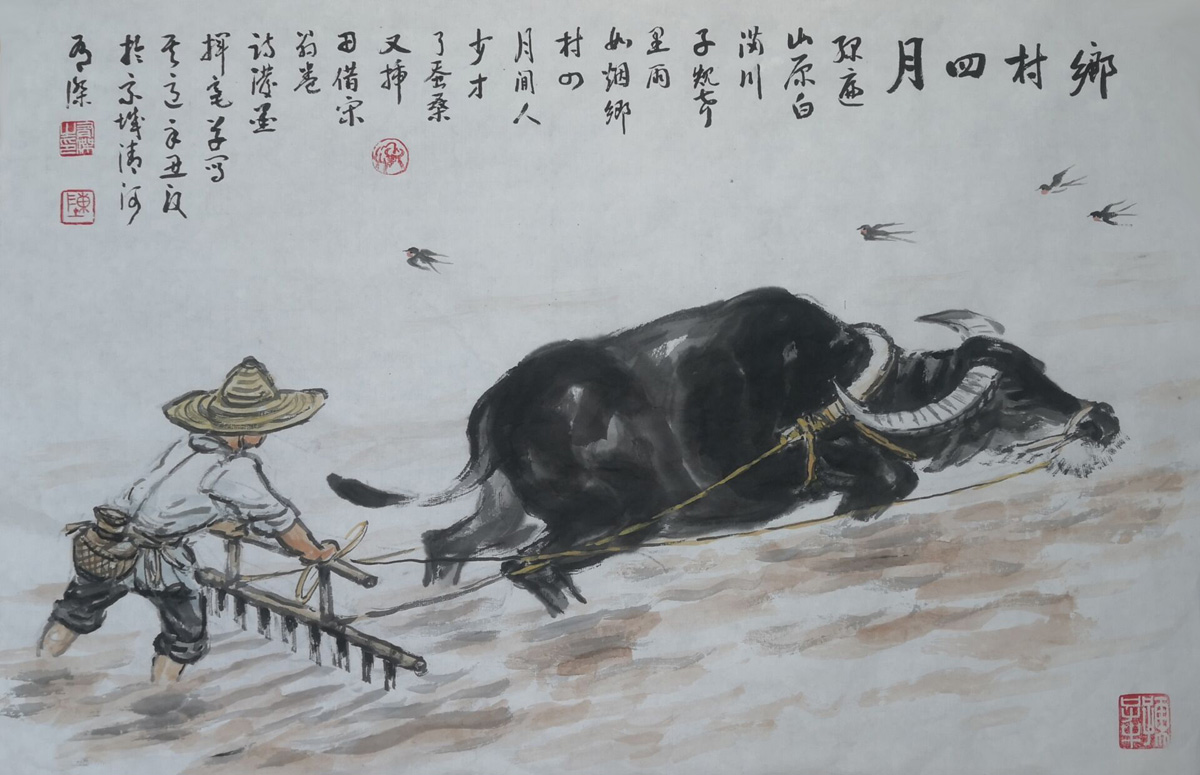 鄉村四月
绿遍
山原白
满川
子规声
里雨
如烟鄉
村四
月間人
少才
了蚕桑
又插
田借宋
翁卷
诗潑墨
揮毫写
其意辛丑夏
於京城清河
陳